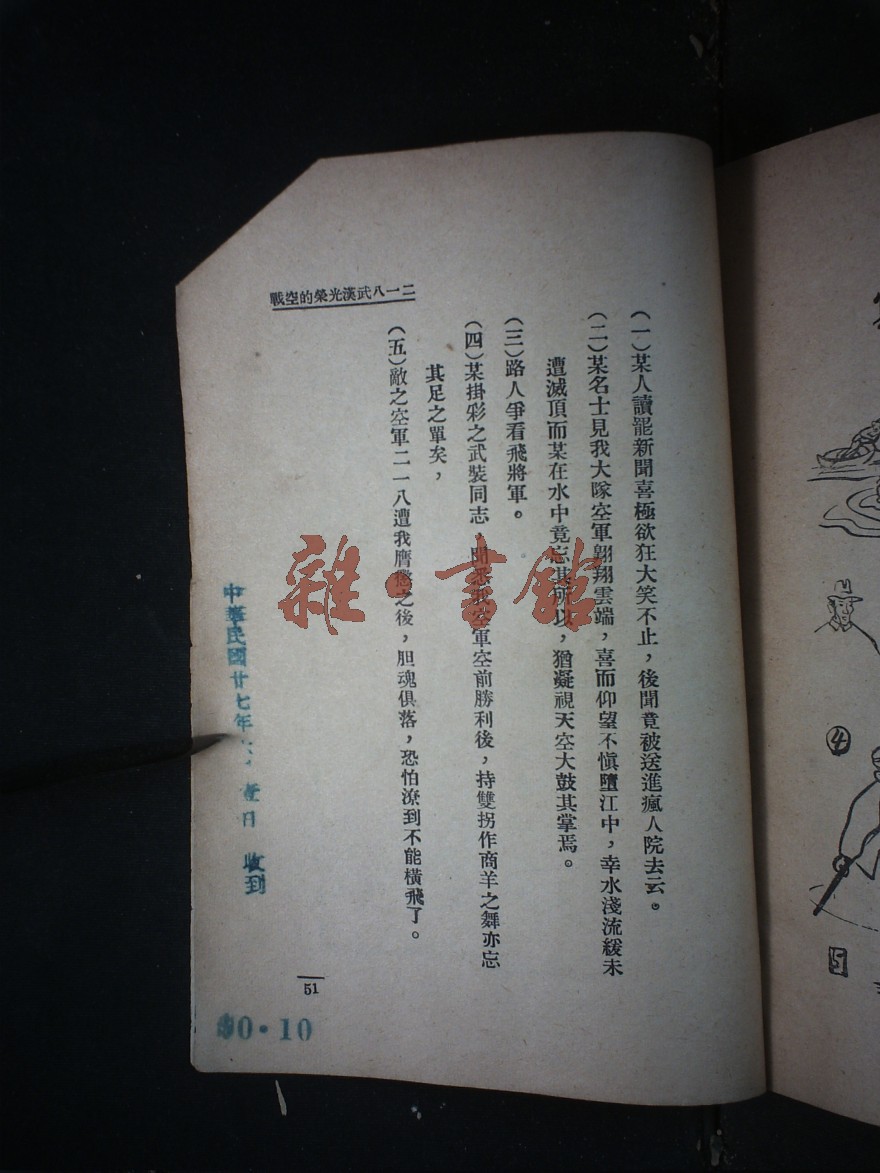 二一八武漢光榮的空戰
(一)某人讀罷新聞喜極欲狂大笑不止，後聞竟被送進瘋人院去云。
(二)某名士見我大隊空軍翺翔雲端，喜而仰望不慎墮江中，幸水淺流緩未
遭滅頂而某在水中竟忘其所以，猶凝視天空大鼓其掌焉。
(三)路人爭看飛將軍。
(四)某掛彩之武裝同志，聞悉我空軍空前勝利後，持雙拐作商羊之舞亦忘
其足之單矣，
(五)敵之空軍二一八遭我膺懲之後，胆魂俱落，恐怕潦到不能橫飛了。
51
中華民國廿七年 壹日 收到
0·10
雜·書館
4
5